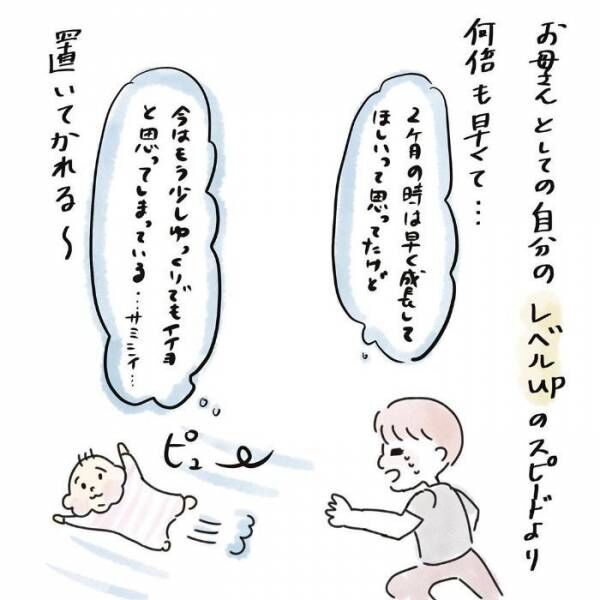 お母さんとしての自分のレベルupのスピードより
何倍も早くて…
2ヶ月の時は早く成長して
ほしいって思ってたけど
今はもう少しゆっくりでもイイヨ
と思ってしまっている
…サミシイ…
置いてかれる〜
ピュー